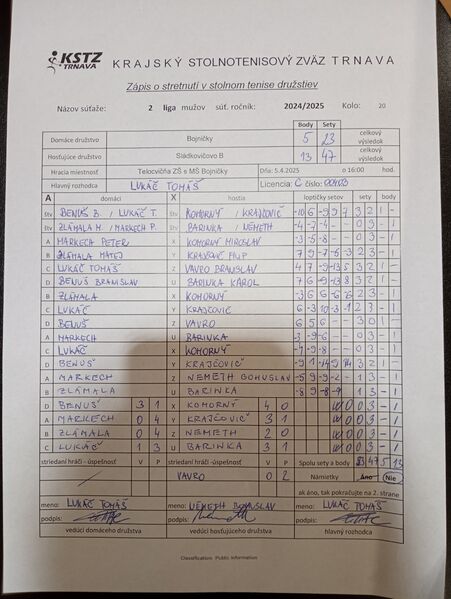 KSTZ
TRNAVA
KRAJSKÝ STOLNOTENISOVÝ ZVÄZ TRNAVA
Zápis o stretnutí v stolnom tenise družstiev
Názov súťaže: 2 liga mužov súť. ročník: 2024/2025 Kolo: 20
Body Sety
Domáce družstvo Bojničky 5 23 celkový výsledok
Hosťujúce družstvo Sládkovičovo B 13 47 celkový výsledok
Hracia miestnosť Telocvičňa ZŠ s MŠ Bojničky Dňa: 5.4.2025 o 16:00 hod.
Hlavný rozhodca LUKÁČ TOMÁŠ Licencia: C číslo:
A domáci X hostia loptičky setov sety body
štv BENUŠ B. / LUKÁČ T. štv KOMORNÝ / KRAJČOVIČ -10 6 -9 9 7 3 2 1 -
štv ZLÁMALA M. / MARKECH P. štv BARINKA / NÉMETH -4 -7 -4 - - 0 3 - 1
A MARKECH PETER X KOMORNÝ MIROSLAV -3 -5 -8 - - 0 3 - 1
B ZLÁMALA MATEJ Y KRAJČOVIČ 2 3 - 1
C LUKÁČ TOMÁŠ Z VAVRO BRANISLAV 4 7 -9 -13 5 3 2 1 -
D BENUŠ BRANISLAV U BARINKA KAROL 7 6 -9 -13 8 3 2 1 -
B ZLÁMALA X KOMORNÝ 2 3 - 1
C LUKÁČ Y KRAJČOVIČ 2 3 - 1
D BENUŠ Z VAVRO 6 5 6 - - 3 0 1 -
A MARKECH U BARINKA 0 3 - 1
C LUKÁČ X KOMORNÝ -7 -9 -8 - - 0 3 - 1
D BENUŠ Y KRAJČOVIČ 3 2 1 -
A MARKECH Z NEMETH BOHUSLAV -5 9 -9 -2 - 1 3 - 1
B ZLÁMALA U BARINKA 1 3 - 1
D BENUŠ 3 1 X KOMORNÝ 4 0 0 3 - 1
A MARKECH 0 4 Y KRAJČOVIČ 3 1 0 3 - 1
B ZLÁMALA 0 4 Z NEMETH 2 0 0 3 - 1
C LUKÁČ 1 3 U BARINKA 3 1 0 3 - 1
striedaní hráči - úspešnosť V P striedaní hráči - úspešnosť V P Spolu sety a body 23 47 5 13
VAVRO 0 2 Námietky Áno Nie
ak áno, tak pokračujte na 2. strane
meno: LUKÁČ TOMÁŠ meno: NÉMETH BOHUSLAV meno: LUKÁČ TOMÁŠ
podpis: podpis: podpis:
vedúci domáceho družstva vedúci hosťujúceho družstva hlavný rozhodca
Classification: Public Information